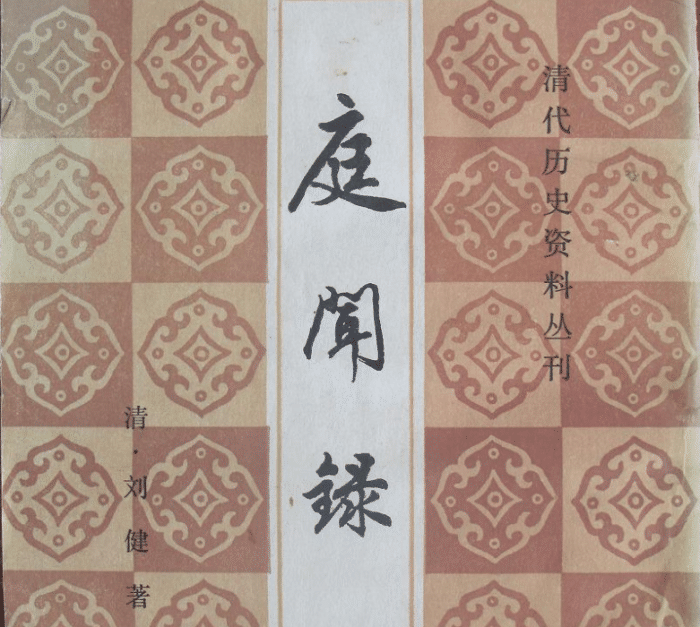 清代历史资料丛刊
庭聞録
清·刘健著